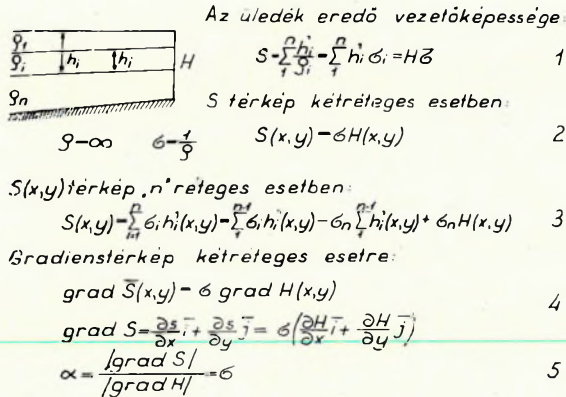 Az üledék eredő vezetőképessége:
ρ₁
ρᵢ hᵢ h'ᵢ H
S=∑₁ⁿ h'ᵢ/ρᵢ=∑₁ⁿ h'ᵢ σᵢ=Hσ̄ 1
ρₙ
S térkép kétréteges esetben:
ρ=∞ σ=1/ρ S(x,y)=σH(x,y) 2
S(x,y) térkép „n" réteges esetben:
S(x,y)=∑ᵢ₌₁ⁿ σᵢh'ᵢ(x,y)=∑₁ⁿ⁻¹ σᵢh'ᵢ(x,y)-σₙ∑₁ⁿ⁻¹h'ᵢ(x,y)+σₙH(x,y) 3
Gradienstérkép kétréteges esetre:
grad S̄(x,y)=σ grad H(x,y)
4
grad S=∂s/∂x i̅+∂s/∂y j̅=σ(∂H/∂x i̅+∂H/∂y j̅)
α=|grad S|/|grad H|=σ 5